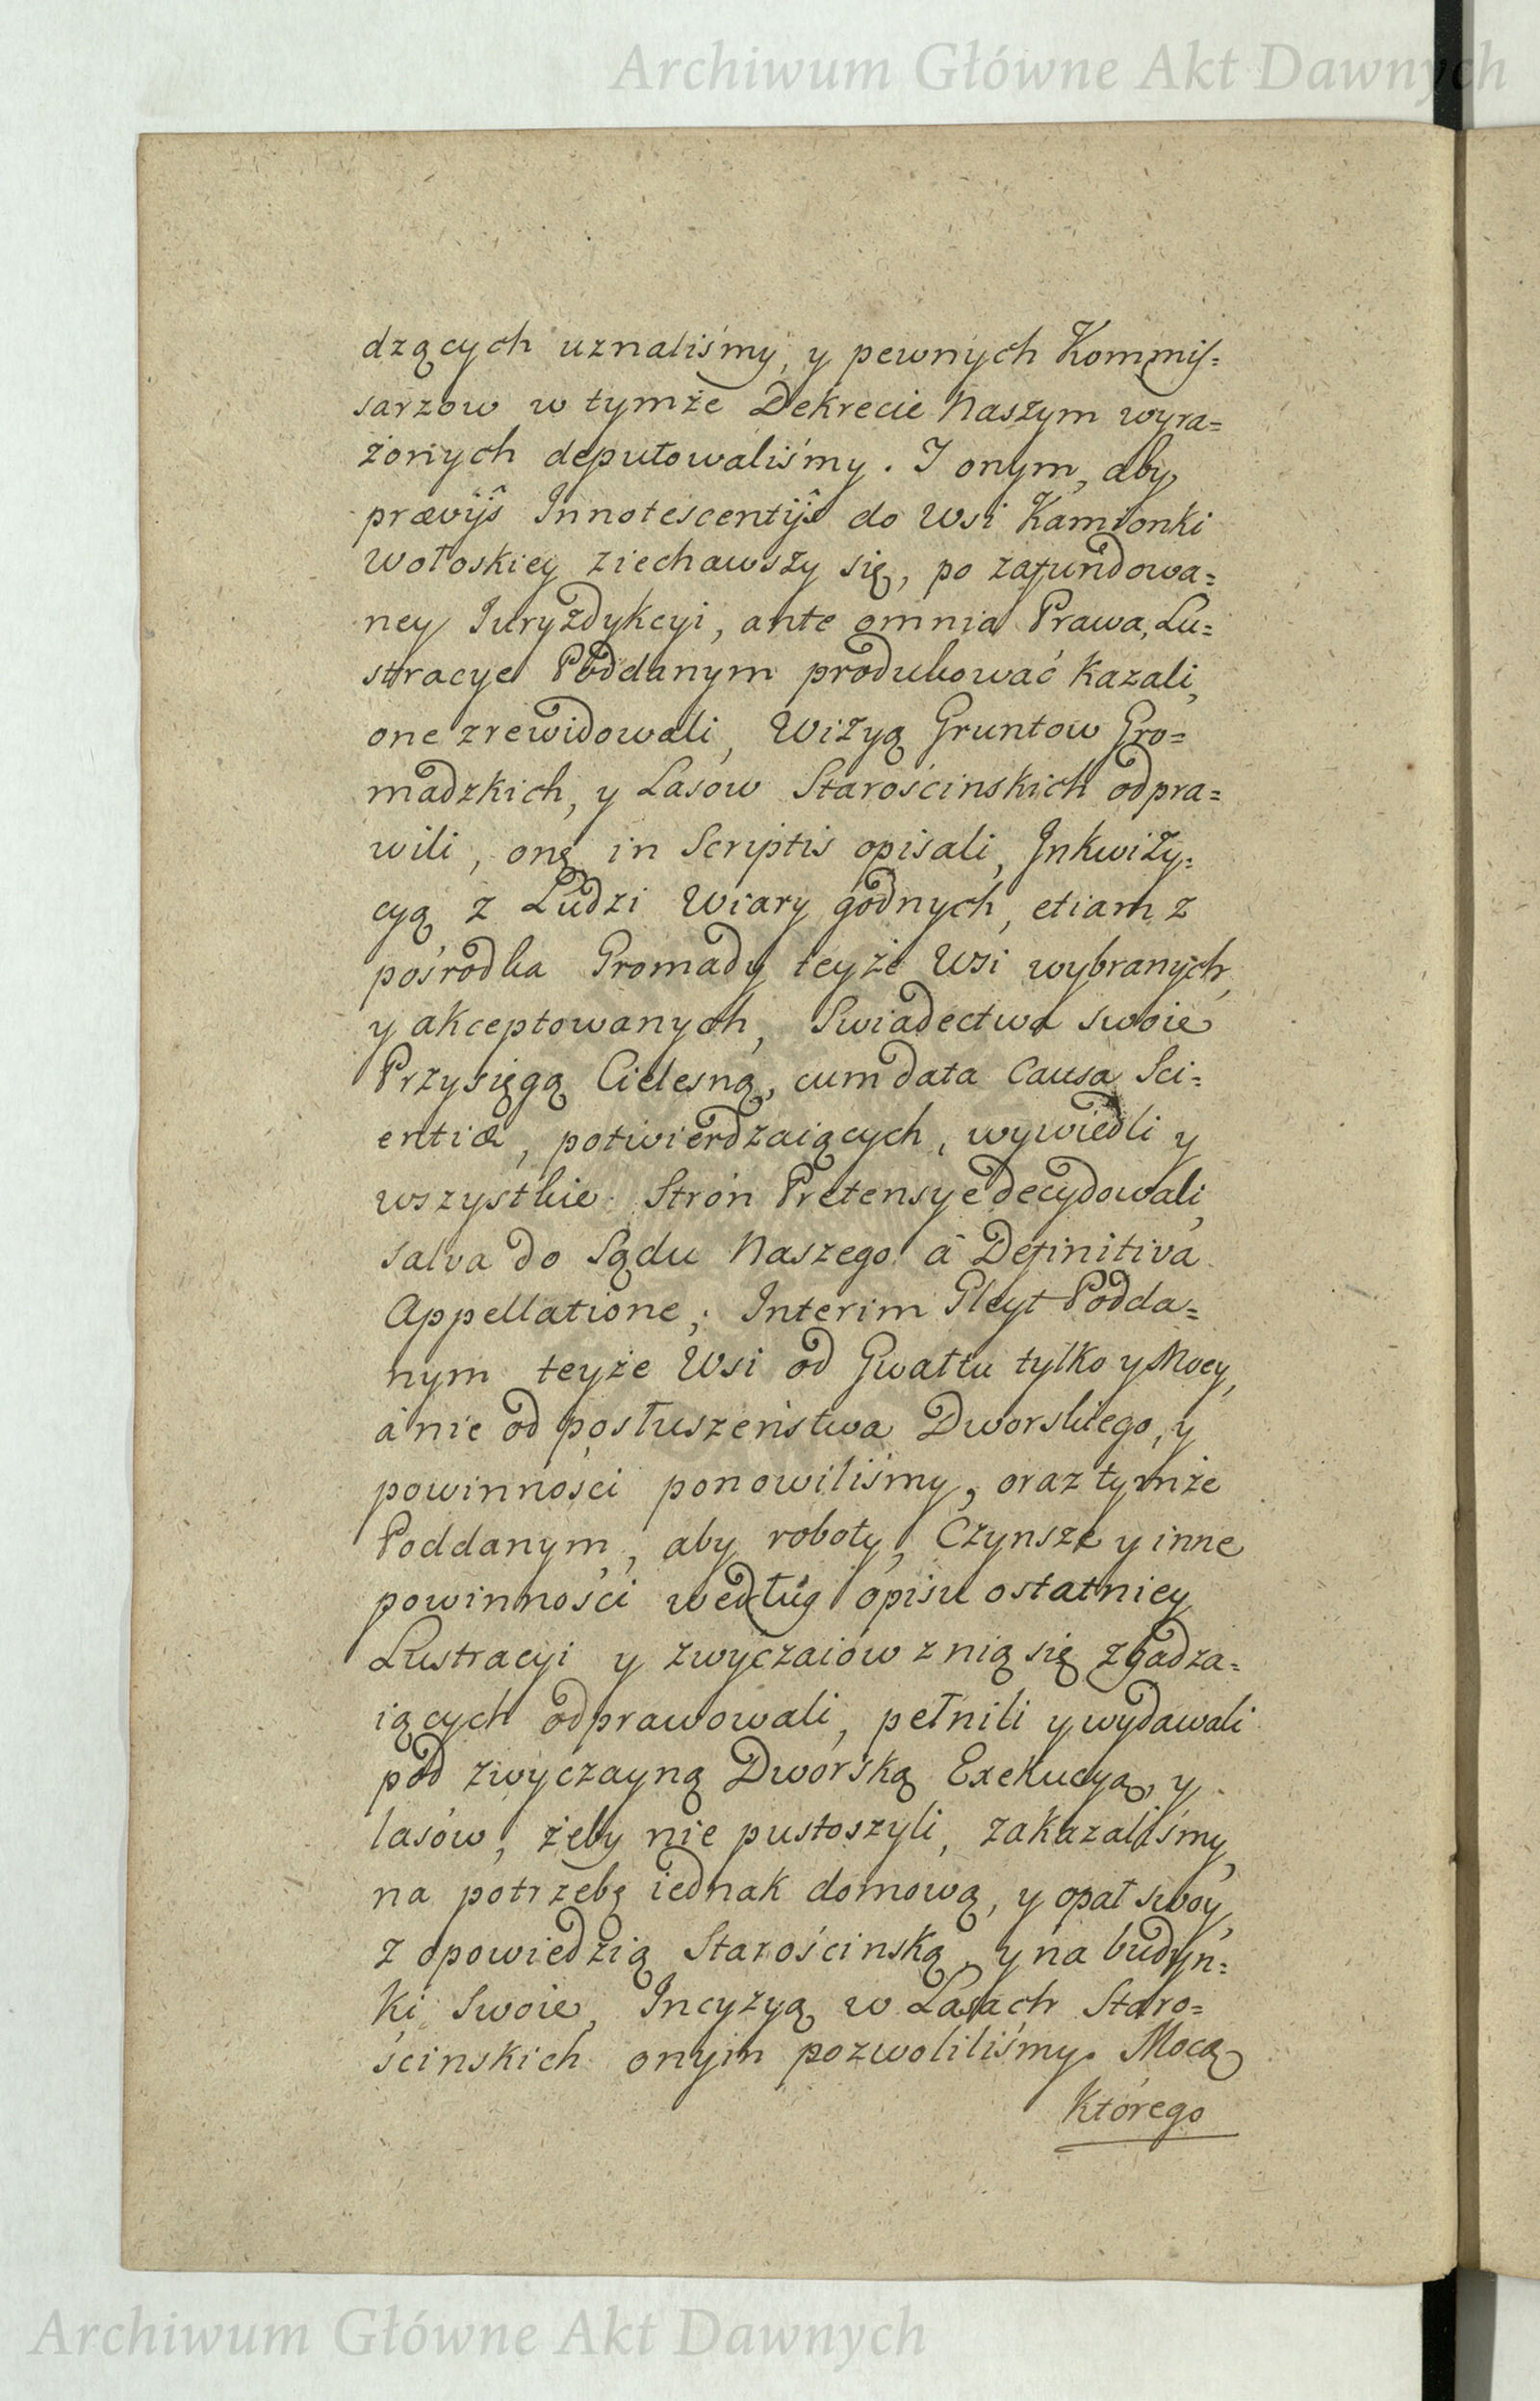 Archiwum Główne Akt Dawnych
dzących uznaliśmy, y pewnych Kommis=
sarzow w tymże Dekrecie Naszym wyra=
żonych deputowaliśmy. I onym, aby
prævijs Innotescentijs do Wsi Kamionki
Wołoskiey ziechawszy się, po zafundowa=
ney Juryzdykcyi, ante omnia Prawa, Lu=
stracye Poddanym produkować kazali,
one zrewidowali, Wizyą Gruntow Gro=
madzkich, y Lasow Starościnskich odpra=
wili, onę in Scriptis opisali, Inkwizy=
cyą z Ludzi Wiary godnych, etiam z
pośrodka Gromady teyże Wsi wybranych,
y akceptowanych, Swiadectwa swoie
Przysięgą Cielesną, cum data Causa Sci=
entiæ, potwierdzaiących, wywiedli y
wszystkie Stron Pretensye decydowali,
salva do Sądu Naszego â Definitiva
Appellatione; Interim Gleyt Podda=
nym teyże Wsi od Gwałtu tylko y Mocy,
á nie od posłuszeństwa Dworskiego, y
powinności ponowiliśmy, oraz tymże
Poddanym, aby roboty, Czynsze y inne
powinności według opisu ostatniey
Lustracyi y zwyczaiow z nią się zgadza=
iących odprawowali, pełnili y wydawali
pod zwyczayną Dworską Exekucyą, y
lasów, żeby nie pustoszyli, zakazaliśmy,
na potrzebę iednak domową, y opał swoy,
z opowiedzią Starościnską, y na budyn=
ki swoie, Incyzyą w Lasach Staro=
ścinskich onym pozwoliliśmy. Mocą
którego
Archiwum Główne Akt Dawnych